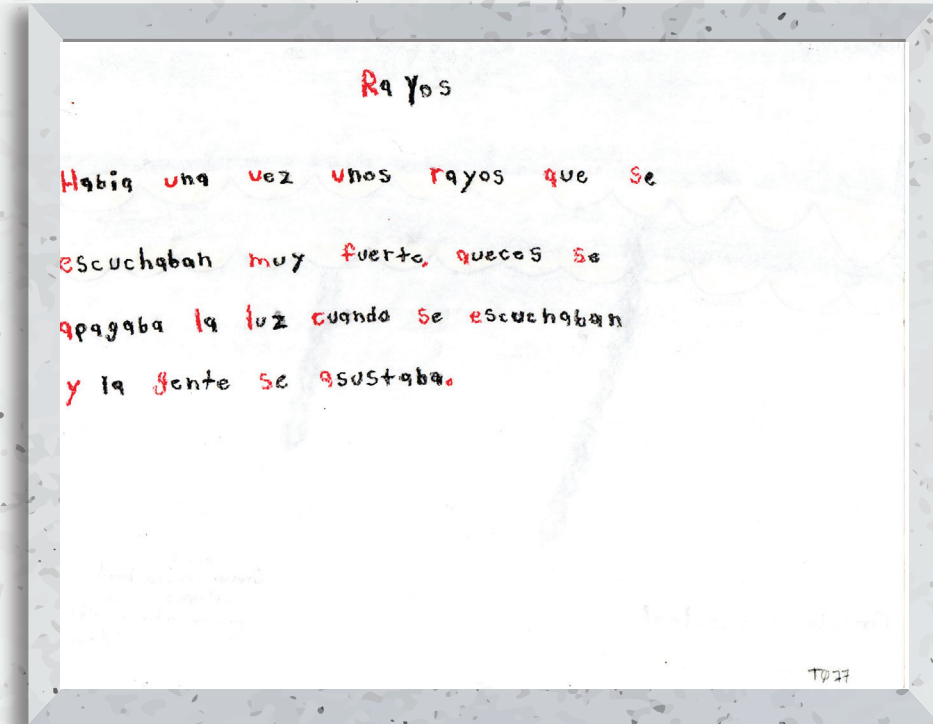 Rayos
Habia una vez unos rayos que se
escuchaban muy fuerte, aveces se
apagaba la luz cuando se escuchaban
y la gente se asustaba.